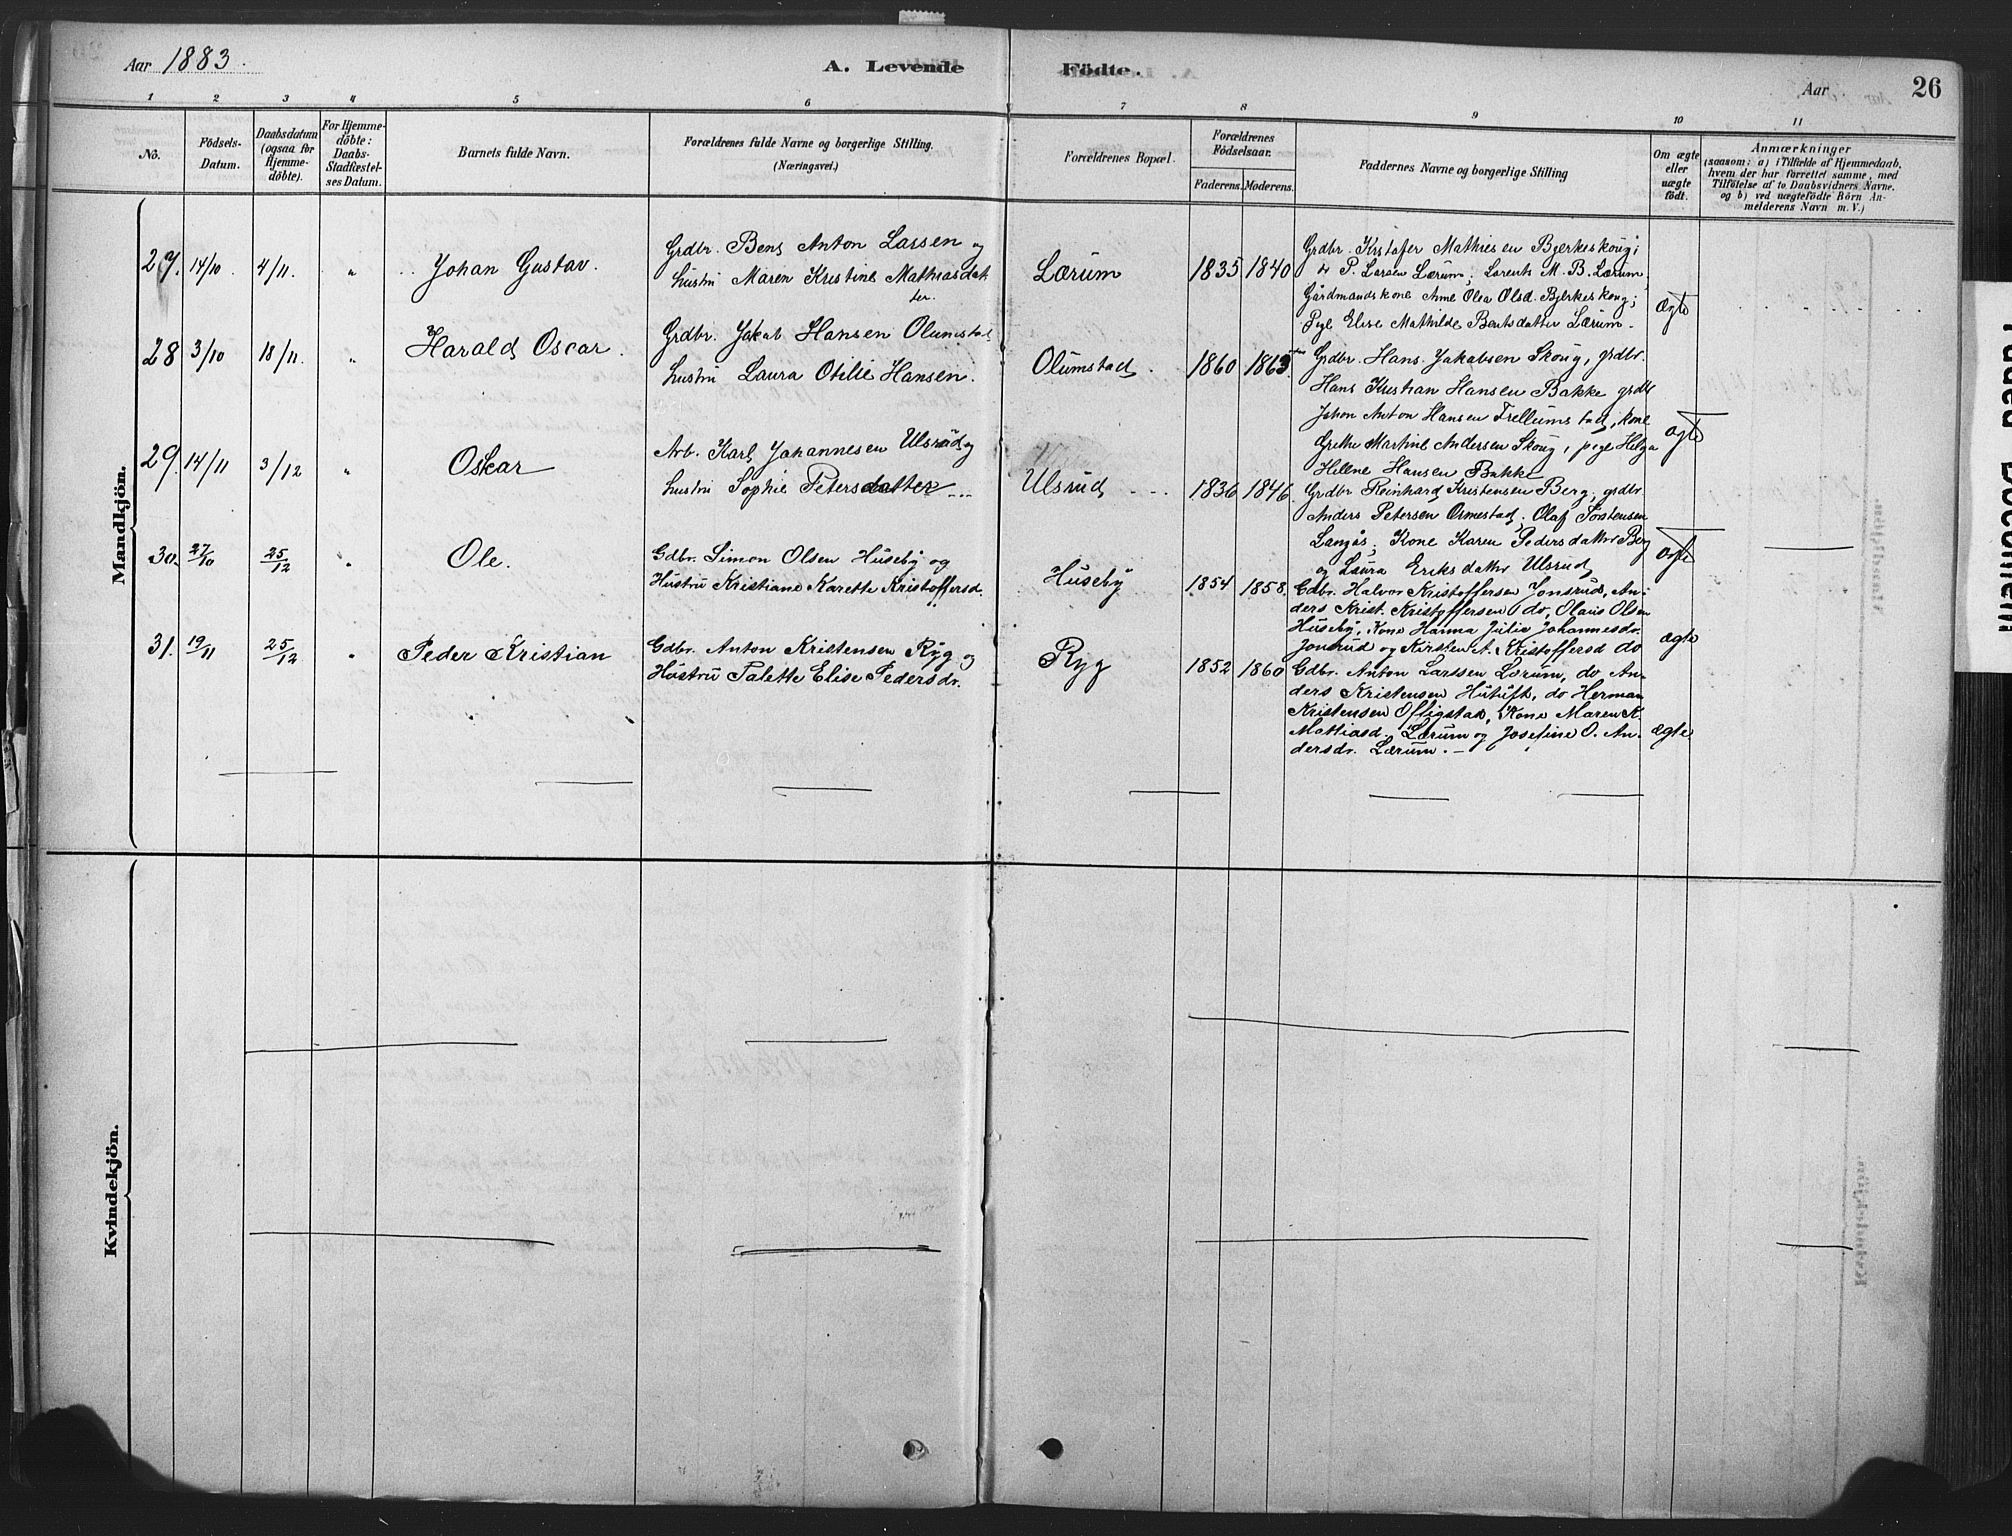 Aar 1883.
A. Levende Födte.
Aar
26
1 2 3 4 5 6 7 8 9 10 11
No.
Födsels-
Datum.
Daabsdatum
(ogsaa for
Hjemme-
döbte).
For Hjemme-
döbte:
Daabs-
Stadfæstel-
ses Datum.
Barnets fulde Navn.
Forældrenes fulde Navne og borgerlige Stilling.
(Næringsvei.)
Forældrenes Bopæl.
Forældrenes
Födselsaar.
Faderens. Moderens.
Faddernes Navne og borgerlige Stilling
Om ægte
eller
uægte
födt.
Anmærkninger
(saasom: a) i Tilfælde af Hjemmedaab,
hvem der har forrettet samme, med
Tilföielse af to Daabsvidners Navne.
og b) ved uægtefödte Börn An-
melderens Navn m. V.)
Mandkjön.
27. 14/10. 4/11. " Johan Gustav.
Grdbr. Bent Anton Larsen og
hustru Maren Kristine Mathiasdat
ter.
Lærum 1835 1840
Grdbr. Kristofer Mathiesen Bjerkeskoug;
P. Larsen Lærum; Lorents M. B. Lærum
Gårdmandskone Anne Olea Olsd. Bjerkeskoug;
Pige Elise Mathilde Bentsdatter Lærum.
Ægte
28 3/10 18/11. " Harald Oscar.
Grdbr. Jakob Hansen Olumstad
hustru Laura Otilie Hansen.
Olumstad. 1860 1863
Grdbr. Hans Jakobsen Skoug, grdbr.
Hans Kristian Hansen Bakke grdbr
Johan Anton Hansen Trellumstad, kone
Grethe Martine Andersen Skoug, pige Helga
Hellene Hansen Bakke
ægte
29. 14/11 3/12 " Oskar
Arb. Karl Johannesen Ulsrud og
hustru Sophie Petersdatter
Ulsrud 1836 1846.
Grdbr Reinhard Kristensen Berg, grdbr.
Anders Petersen Ormestad, Olaf Torstensen
Langås, Kone Karen Pedersdatter Berg
og Laura Eriksdatter Ulsrud
ægte
30. 27/10 25/12 " Ole.
Gdbr. Simon Olsen Huseby og
Hustru Kristiane Karette Kristoffersd.
Huseby 1854 1858.
Gdbr. Halvor Kristoffersen Jonsrud, An-
ders Krist. Kristoffersen do, Olaus Olsen
Huseby, Kone Hanna Julie Johannesdr.
Jonsrud og Kirsten A. Kristoffersd do
ægte
31. 19/11 25/12 " Peder Kristian
Gdbr. Anton Kristensen Ryg og
Hustru Talette Elise Pedersdr.
Ryg 1852 1860
Gdbr. Anton Larssen Lærum, do An-
ders Kristensen Hutuft, do Herman
Kristensen Offigstad, Kone Maren K.
Mattiasd. Lærum og Josefine O. An-
dersdr. Lærum.
ægte
Kvindekjön.